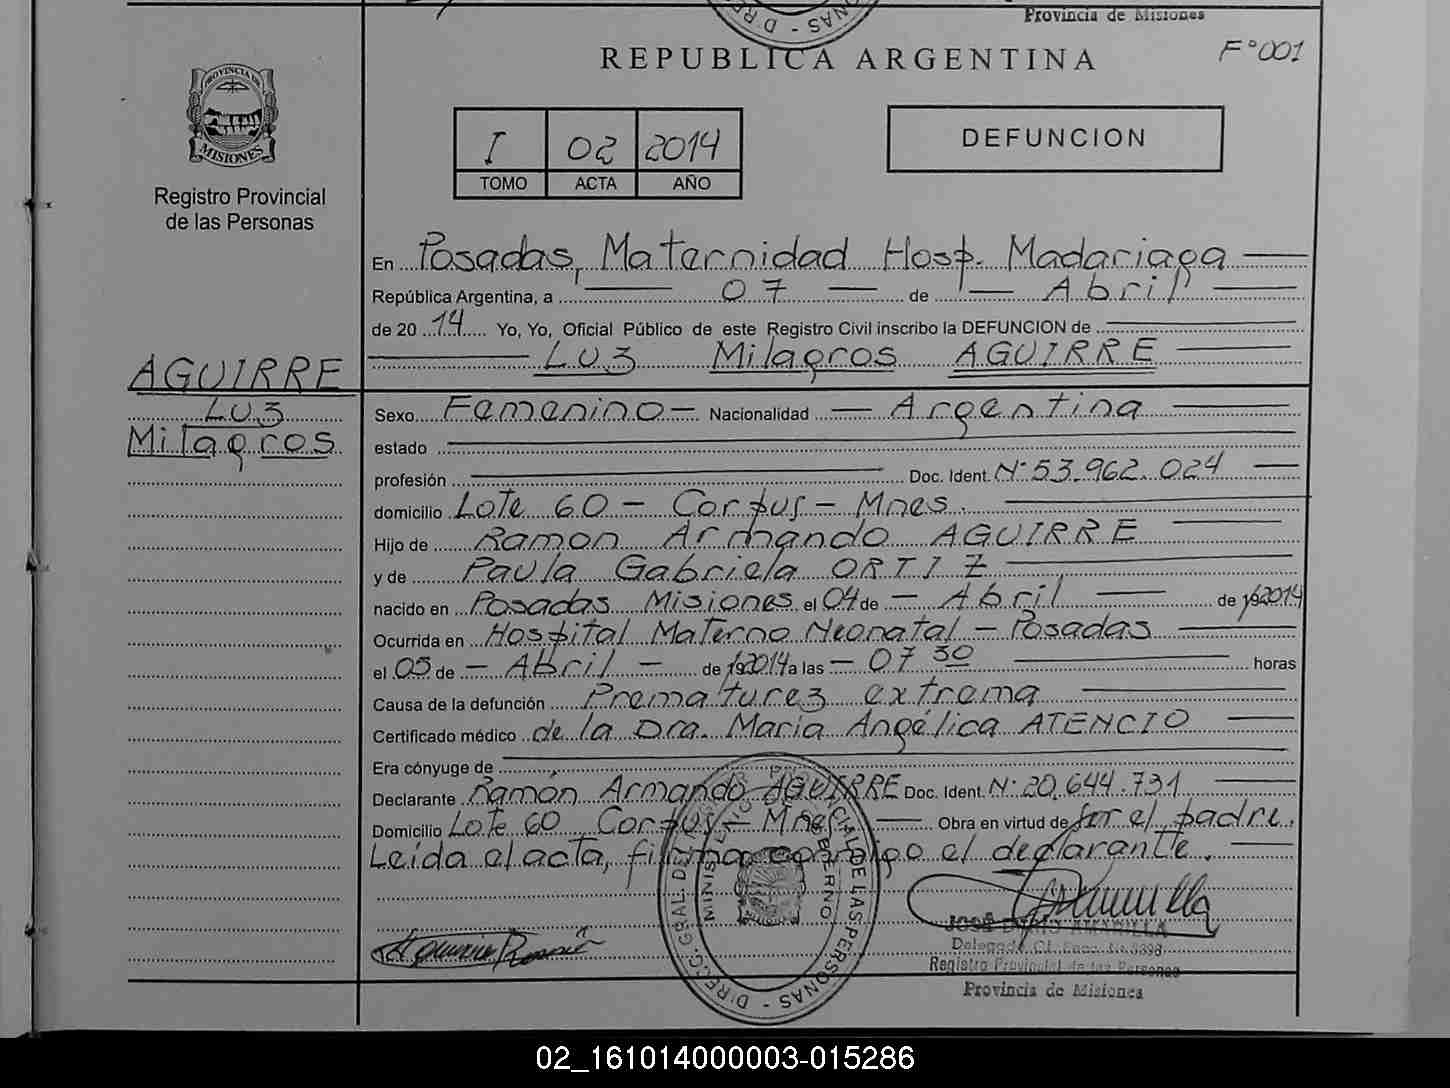 Provincia de Misiones
REPUBLICA ARGENTINA
F° 001
PROVINCIA DE
MISIONES
Registro Provincial
de las Personas
I 02 2014
TOMO ACTA AÑO
DEFUNCION
En Posadas, Maternidad Hosp. Madariaga
República Argentina, a 07 de Abril
de 2014 Yo, Yo, Oficial Público de este Registro Civil inscribo la DEFUNCION de
Luz Milagros AGUIRRE
AGUIRRE
Luz
Milagros
Sexo Femenino - Nacionalidad - Argentina
estado
profesión Doc. Ident. N° 53.962.024
domicilio Lote 60 - Corpus - Mnes.
Hijo de Ramon Armando AGUIRRE
y de Paula Gabriela ORTIZ
nacido en Posadas Misiones el 04 de - Abril de 2014
Ocurrida en Hospital Materno Neonatal - Posadas
el 05 de - Abril - de 2014 a las - 07 30 horas
Causa de la defunción Prematurez extrema
Certificado médico de la Dra. María Angélica ATENCIO
Era cónyuge de
Declarante Ramón Armando AGUIRRE Doc. Ident. N° 20.644.731
Domicilio Lote 60 Corpus - Mnes Obra en virtud de ser el padre.
Leída el acta, firma conmigo el declarante.
DIREC. GRAL. DEL REG. PROVINCIAL DE LAS PERSONAS
MINISTERIO DE GOBIERNO
Aguirre Ramón
JOSÉ AMARILLA
Registro Provincial de las Personas
Provincia de Misiones
02_161014000003-015286